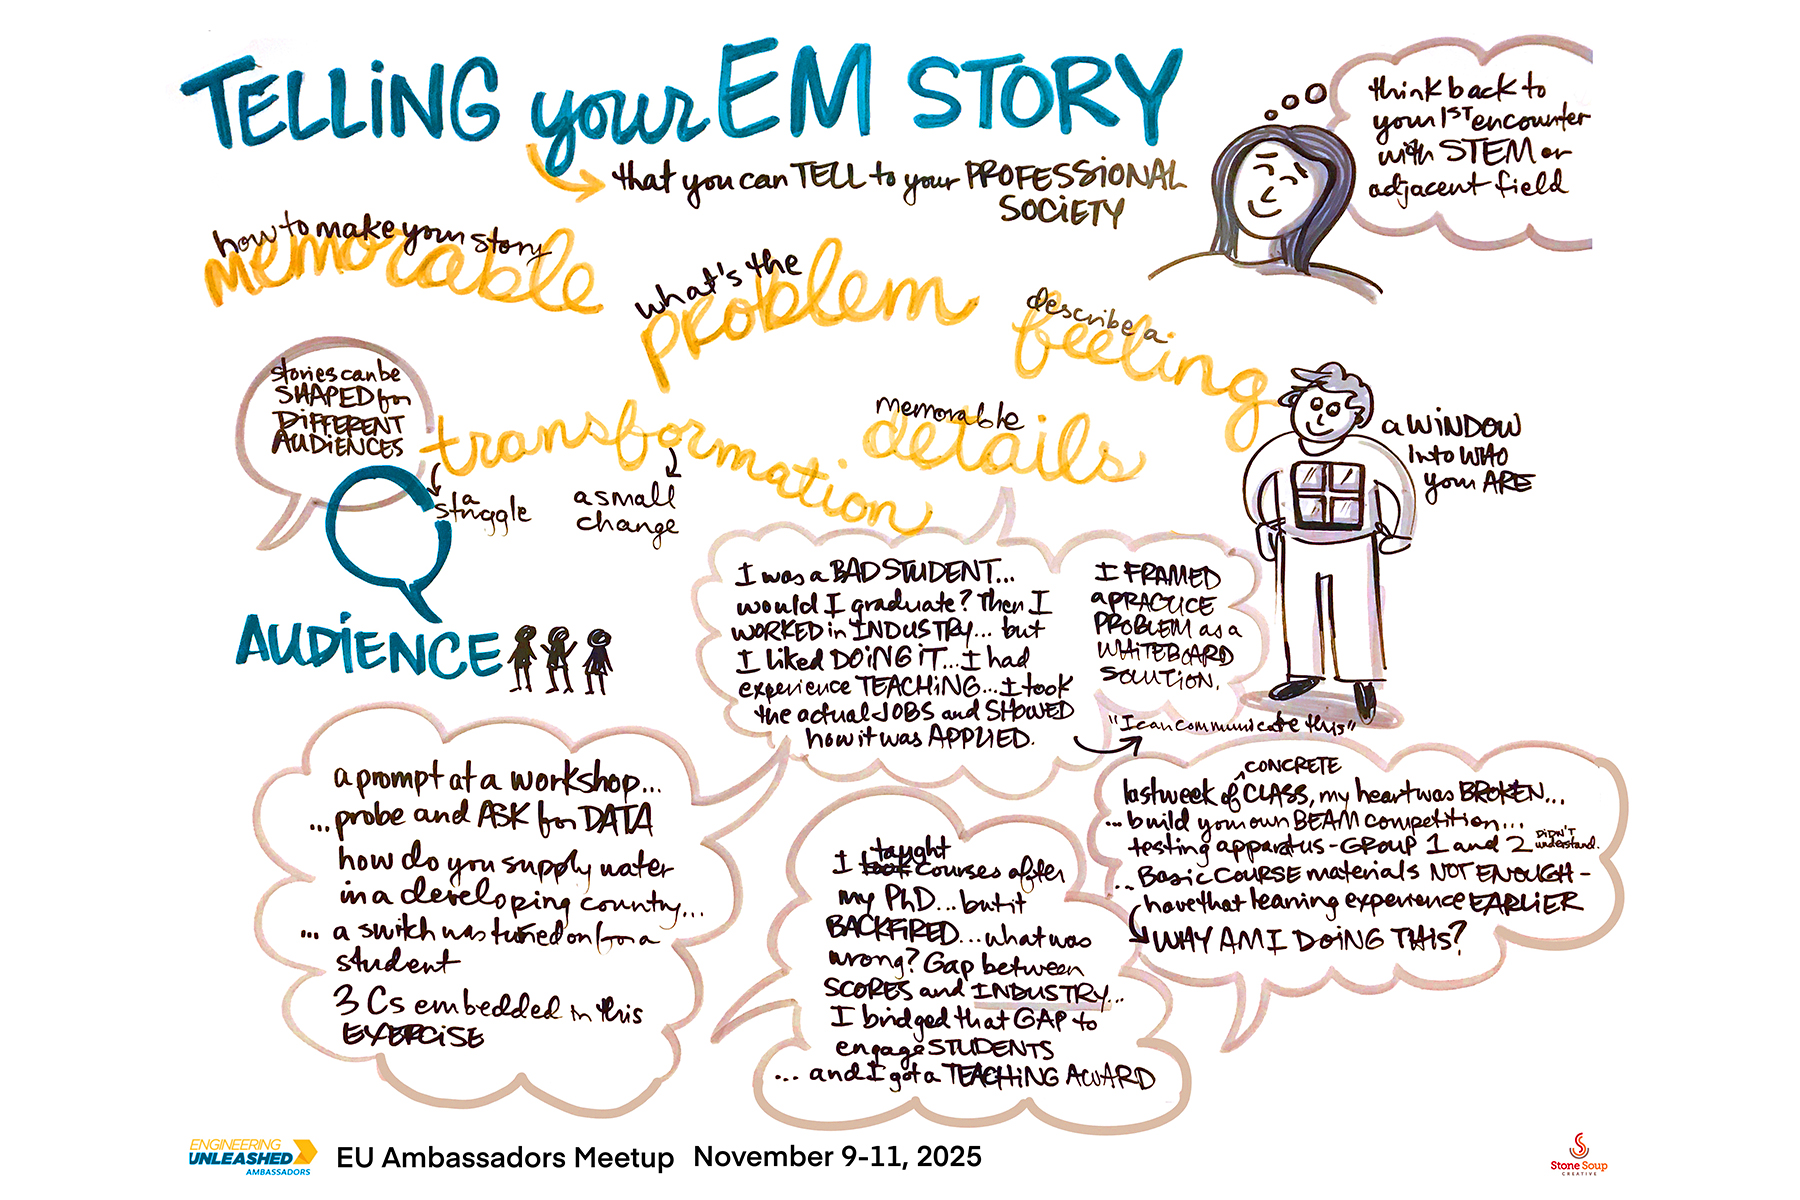 TELLING your EM STORY
that you can TELL to your PROFESSIONAL
SOCIETY
think back to
your 1ST encounter
with STEM or
adjacent field
how to make your story
memorable
what's the
problem
describe a
feeling
stories can be
SHAPED for
DIFFERENT
AUDIENCES
transformation
a
struggle
a small
change
memorable
details
a WINDOW
into WHO
your ARE
AUDIENCE
I was a BAD STUDENT...
would I graduate? Then I
WORKED in INDUSTRY... but
I liked DOING IT... I had
experience TEACHING... I took
the actual JOBS and SHOWED
how it was APPLIED.
I FRAMED
a PRACTICE
PROBLEM as a
WHITEBOARD
SOLUTION.
"I can communicate this"
a prompt at a workshop...
... probe and ASK for DATA
how do you supply water
in a developing country...
... a switch was turned on for a
student
3 Cs embedded in this
EXERCISE
I taught courses after
my PhD... but it
BACKFIRED... what was
wrong? Gap between
SCORES and INDUSTRY...
I bridged that GAP to
engage STUDENTS
... and I got a TEACHING AWARD
last week of CONCRETE CLASS, my heart was BROKEN...
... build your own BEAM competition...
testing apparatus - GROUP 1 and 2 DIDN'T understand.
.. Basic COURSE materials NOT ENOUGH -
have that learning experience EARLIER
WHY AM I DOING THIS?
ENGINEERING
UNLEASHED
AMBASSADORS
EU Ambassadors Meetup November 9-11, 2025
Stone Soup
CREATIVE